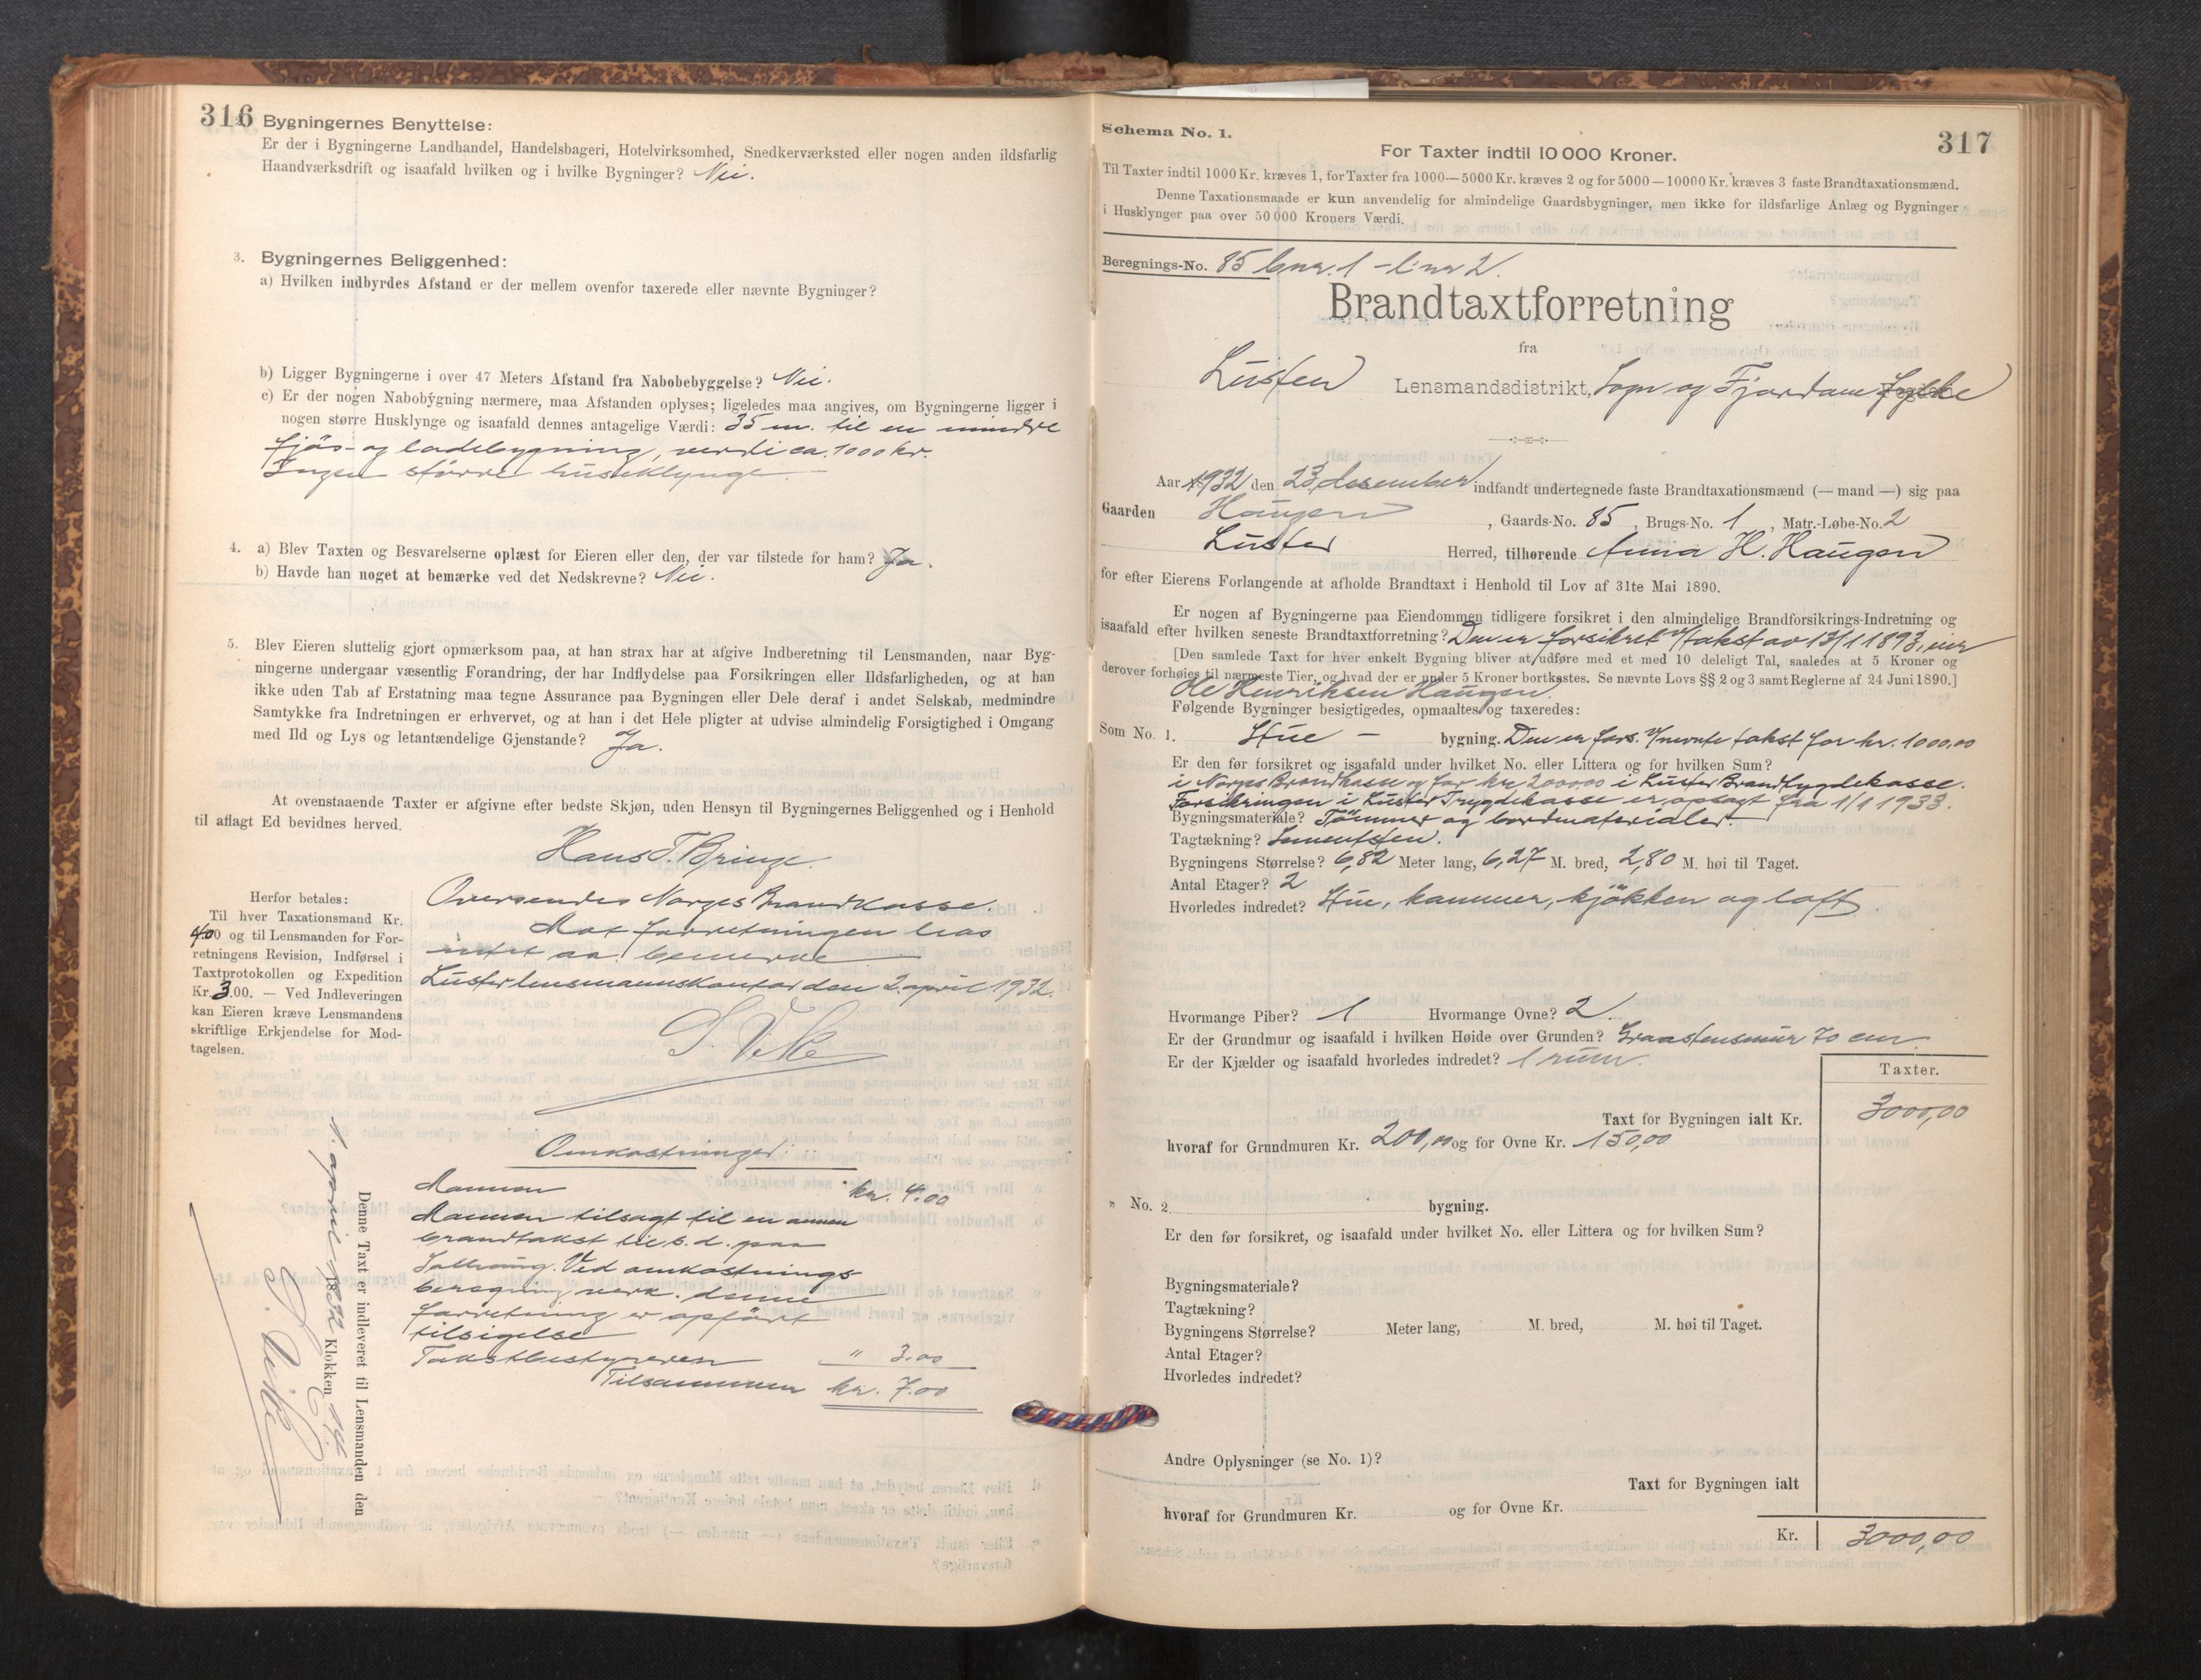 316
Bygningernes Benyttelse:
Er der i Bygningerne Landhandel, Handelsbageri, Hotelvirksomhed, Snedkerværksted eller nogen anden ildsfarlig
Haandværksdrift og isaafald hvilken og i hvilke Bygninger? Nei.
3. Bygningernes Beliggenhed:
a) Hvilken indbyrdes Afstand er der mellem ovenfor taxerede eller nævnte Bygninger?
b) Ligger Bygningerne i over 47 Meters Afstand fra Nabobebyggelse? Nei.
c) Er der nogen Nabobygning nærmere, maa Afstanden oplyses; ligeledes maa angives, om Bygningerne ligger i
nogen større Husklynge og isaafald dennes antagelige Værdi: 35 m. til en mindre
fjös- og ladebygning, verdi ca. 1000 kr.
Ingen större husklynge
4. a) Blev Taxten og Besvarelserne oplæst for Eieren eller den, der var tilstede for ham? Ja.
b) Havde han noget at bemærke ved det Nedskrevne? Nei.
5. Blev Eieren sluttelig gjort opmærksom paa, at han strax har at afgive Indberetning til Lensmanden, naar Byg-
ningerne undergaar væsentlig Forandring, der har Indflydelse paa Forsikringen eller Ildsfarligheden, og at han
ikke uden Tab af Erstatning maa tegne Assurance paa Bygningen eller Dele deraf i andet Selskab, medmindre
Samtykke fra Indretningen er erhvervet, og at han i det Hele pligter at udvise almindelig Forsigtighed i Omgang
med Ild og Lys og letantændelige Gjenstande? Ja.
At ovenstaaende Taxter er afgivne efter bedste Skjøn, uden Hensyn til Bygningernes Beliggenhed og i Henhold
til aflagt Ed bevidnes herved.
Hans T. Bringe.
Herfor betales:
Til hver Taxationsmand Kr.
4.00 og til Lensmanden for For-
retningens Revision, Indførsel i
Taxtprotokollen og Expedition
Kr. 3.00. — Ved Indleveringen
kan Eieren kræve Lensmandens
skriftlige Erkjendelse for Mod-
tagelsen.
Oversendes Norges Brandkasse.
Mot forretningen haves
intet aa bemerke
Luster lensmannskontor den 2. april 1932.
S. Vike
Omkostninger:
Mannen kr. 4.00
Mannen tilsagt til en annen
brandtakst til s. d. paa
Ved omkostnings
beregning vedk. denne
forretning er opfört
tilsigelse
Takstbestyreren " 3.00
Tilsammen kr. 7.00
Denne Taxt er indleveret til Lensmanden den
1. april 1932 Klokken 14
S. Vike
317
Schema No. 1.
For Taxter indtil 10 000 Kroner.
Til Taxter indtil 1000 Kr. kræves 1, for Taxter fra 1000—5000 Kr. kræves 2 og for 5000—10000 Kr. kræves 3 faste Brandtaxationsmænd.
Denne Taxationsmaade er kun anvendelig for almindelige Gaardsbygninger, men ikke for ildsfarlige Anlæg og Bygninger
i Husklynger paa over 50 000 Kroners Værdi.
Beregnings-No. 85 bnr. 1 - l.nr 2.
Brandtaxtforretning
fra
Luster Lensmandsdistrikt, Sogn og Fjordane Fylke
Aar 1932 den 23 desember indfandt undertegnede faste Brandtaxationsmænd (— mand —) sig paa
Gaarden Haugen, Gaards-No. 85, Brugs-No. 1, Matr.-Løbe-No. 2
Luster Herred, tilhørende Anna H. Haugen
for efter Eierens Forlangende at afholde Brandtaxt i Henhold til Lov af 31te Mai 1890.
Er nogen af Bygningerne paa Eiendommen tidligere forsikret i den almindelige Brandforsikrings-Indretning og
isaafald efter hvilken seneste Brandtaxtforretning? Den er forsikret v/takst av 13/1 1893, eier
[Den samlede Taxt for hver enkelt Bygning bliver at udføre med et med 10 deleligt Tal, saaledes at 5 Kroner og
derover forhøies til nærmeste Tier, og hvad der er under 5 Kroner bortkastes. Se nævnte Lovs §§ 2 og 3 samt Reglerne af 24 Juni 1890.]
Ole Henriksen Haugen.
Følgende Bygninger besigtigedes, opmaaltes og taxeredes:
Som No. 1. Stue - bygning. Den er fors. v/nevnte takst for kr. 1000,00
Er den før forsikret og isaafald under hvilket No. eller Littera og for hvilken Sum?
i Norges Brandkasse og for kr 2000,00 i Luster Brandtrygdekasse.
Forsikringen i Luster Trygdekasse er opsagt fra 1/1 1933.
Bygningsmateriale? Tömmer og bordmaterialer.
Tagtækning? Sementsten.
Bygningens Størrelse? 6,82 Meter lang, 6,27 M. bred, 2,80 M. høi til Taget.
Antal Etager? 2
Hvorledes indredet? Stue, kammer, kjökken og loft
Hvormange Piber? 1 Hvormange Ovne? 2.
Er der Grundmur og isaafald i hvilken Høide over Grunden? Graastensmur 70 cm
Er der Kjælder og isaafald hvorledes indredet? 1 rum.
Taxter.
Taxt for Bygningen ialt Kr. 3000,00
hvoraf for Grundmuren Kr. 200,00 og for Ovne Kr. 150,00
" No. 2 bygning.
Er den før forsikret, og isaafald under hvilket No. eller Littera og for hvilken Sum?
Bygningsmateriale?
Tagtækning?
Bygningens Størrelse? Meter lang, M. bred, M. høi til Taget.
Antal Etager?
Hvorledes indredet?
Andre Oplysninger (se No. 1)?
Taxt for Bygningen ialt
hvoraf for Grundmuren Kr. og for Ovne Kr.
Kr. 3000,00